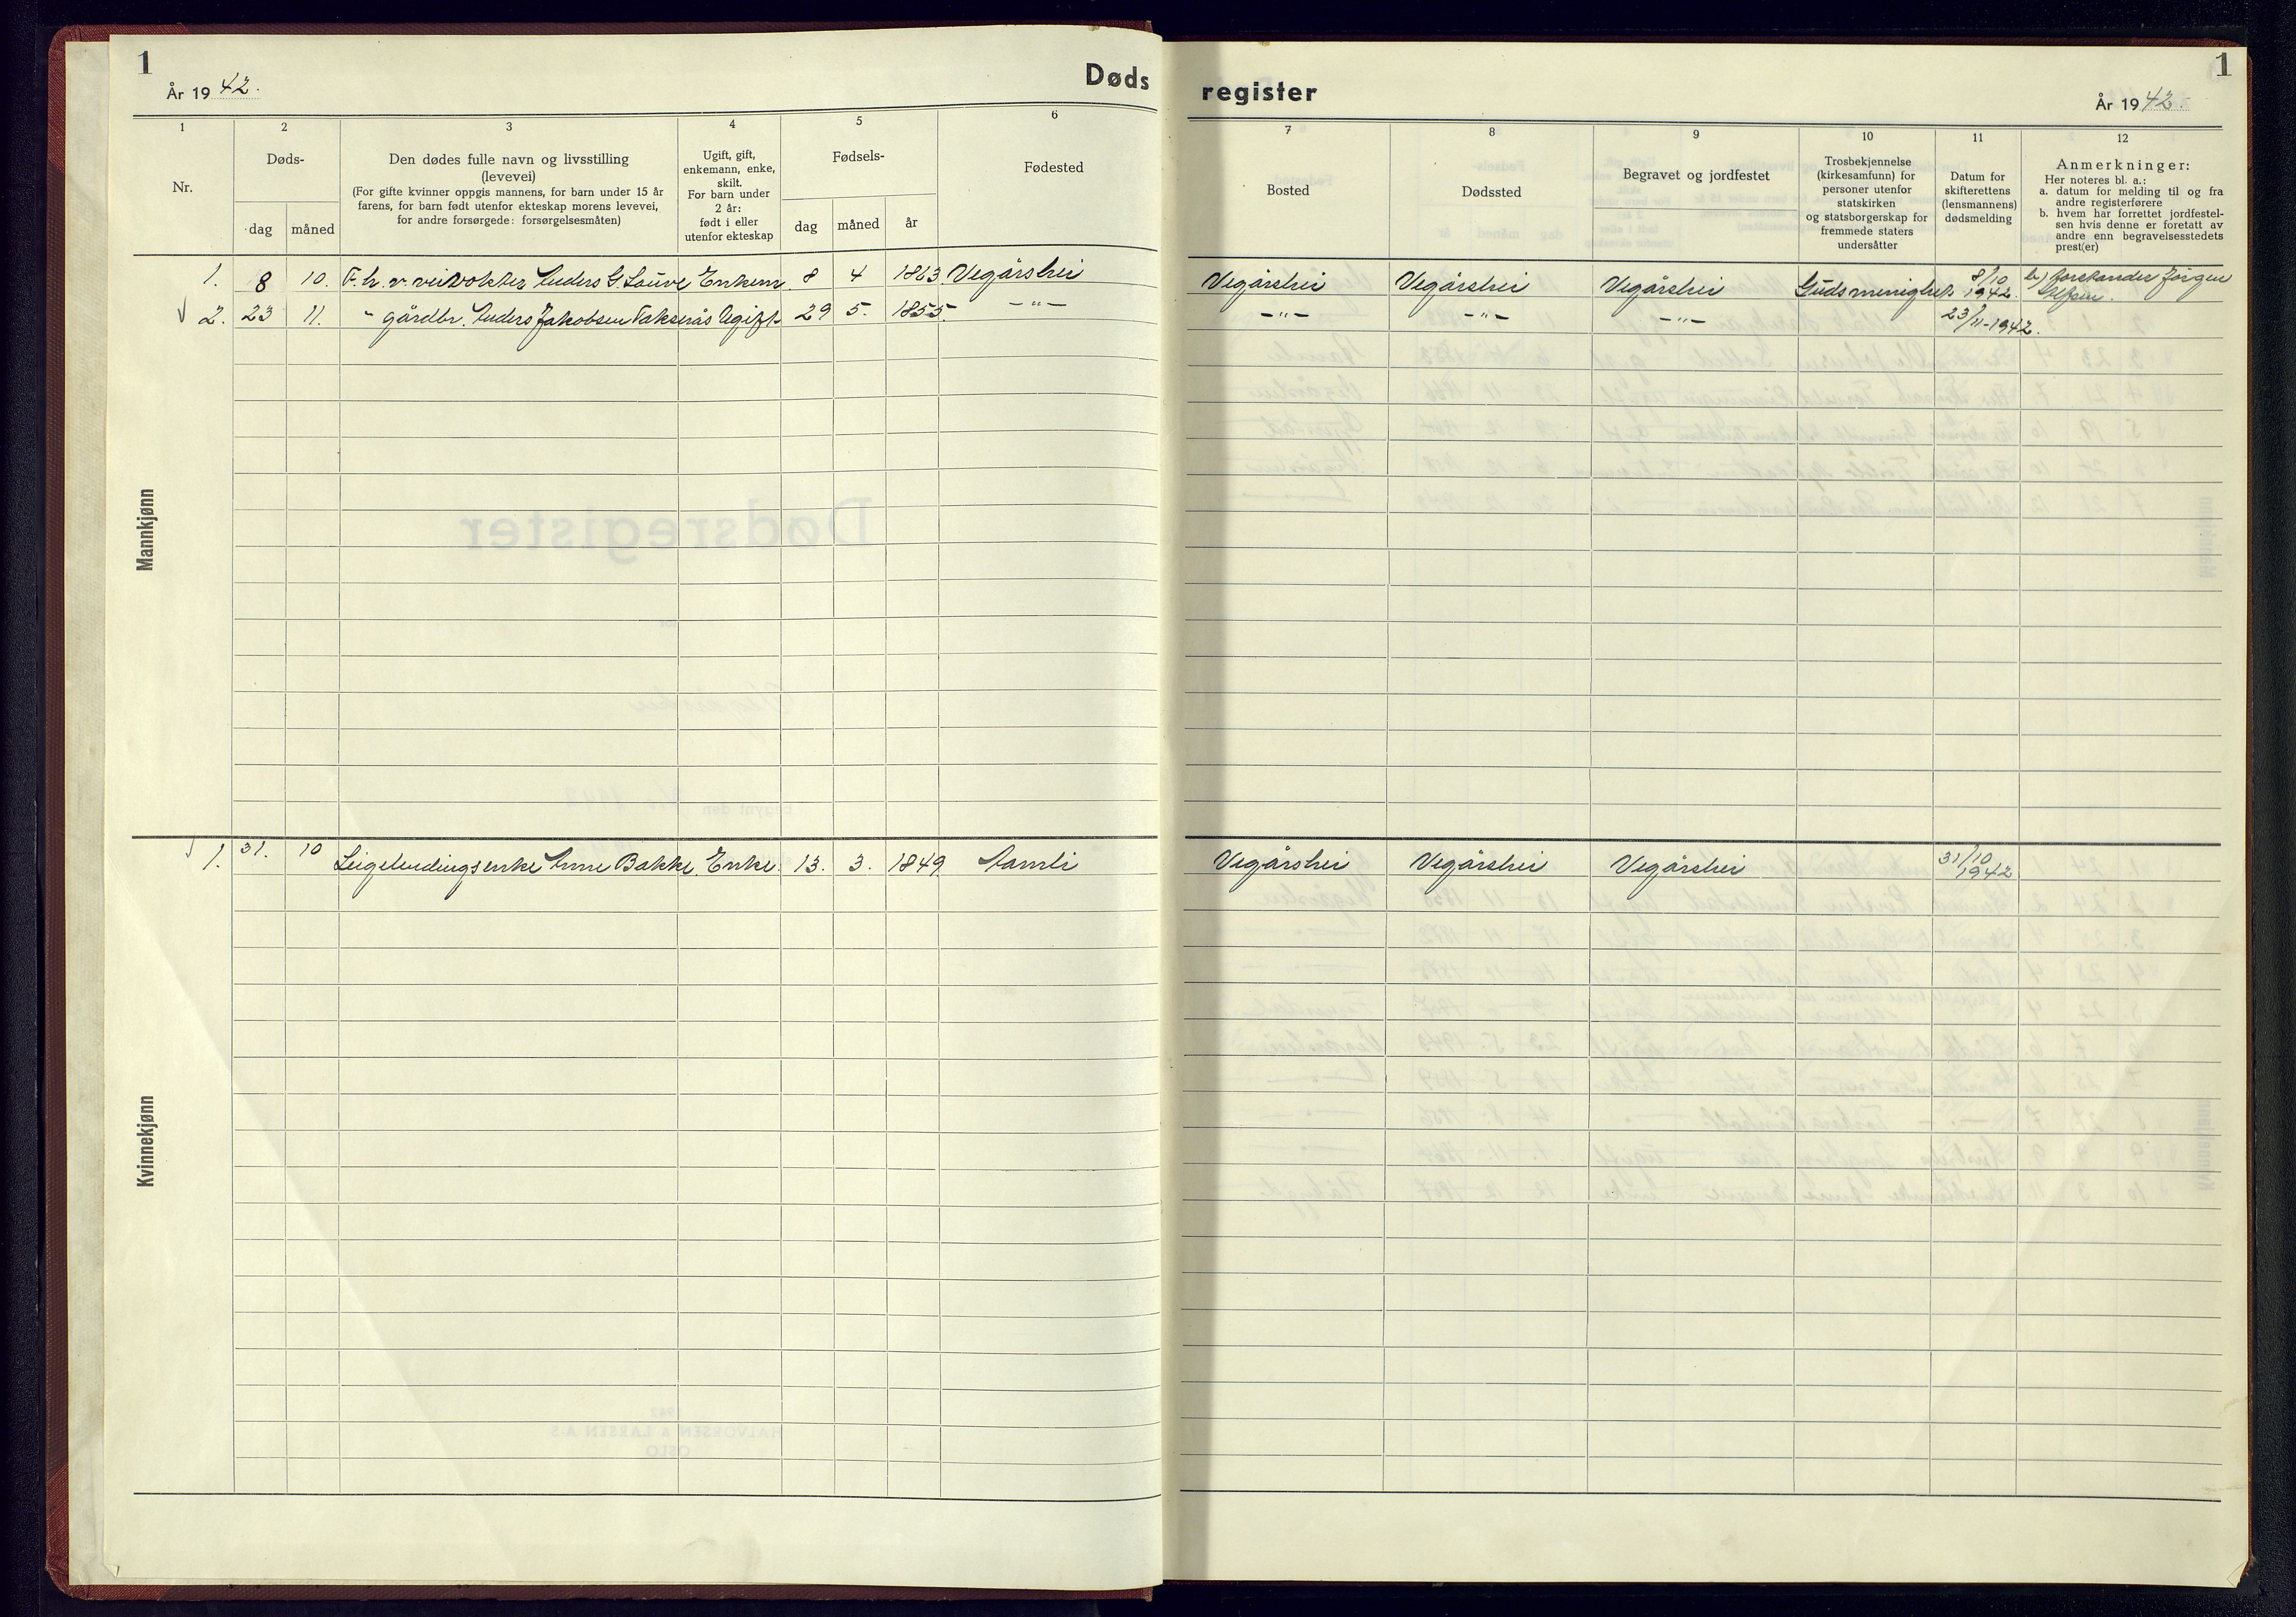 1
År 1942.
Døds
1 2 3 4 5 6
Nr.
Døds-
dag måned
Den dødes fulle navn og livsstilling
(levevei)
(For gifte kvinner oppgis mannens, for barn under 15 år
farens, for barn født utenfor ekteskap morens levevei,
for andre forsørgede: forsørgelsesmåten)
Ugift, gift,
enkemann, enke,
skilt.
For barn under
2 år:
født i eller
utenfor ekteskap
Fødsels-
dag måned år
Fødested
Mannkjønn
1. 8 10. F.h.v. veivokter Anders G. Lauve Enkem. 8 4 1863. Vegårshei
2. 23 11. -"- gårdbr. Anders Jakobsen Vaksnrås Ugift. 29 5. 1855. -"-
Kvinnekjønn
1. 31. 10 Leigelendingsenke Anne Bakke. Enke. 13. 3. 1849. Aamli
register
1
År 1942.
7 8 9 10 11 12
Bosted
Dødssted
Begravet og jordfestet
Trosbekjennelse
(kirkesamfunn) for
personer utenfor
statskirken
og statsborgerskap for
fremmede staters
undersåtter
Datum for
skifterettens
(lensmannens)
dødsmelding
Anmerkninger:
Her noteres bl. a.:
a. datum for melding til og fra
andre registerførere
b. hvem har forrettet jordfestel-
sen hvis denne er foretatt av
andre enn begravelsesstedets
prest(er)
Vegårshei Vegårshei Vegårshei Guds menighet 8/10 1942. b) forstander Jørgen
-"- -"- -"- 23/11-1942.
Vegårshei Vegårshei Vegårshei 31/10 1942